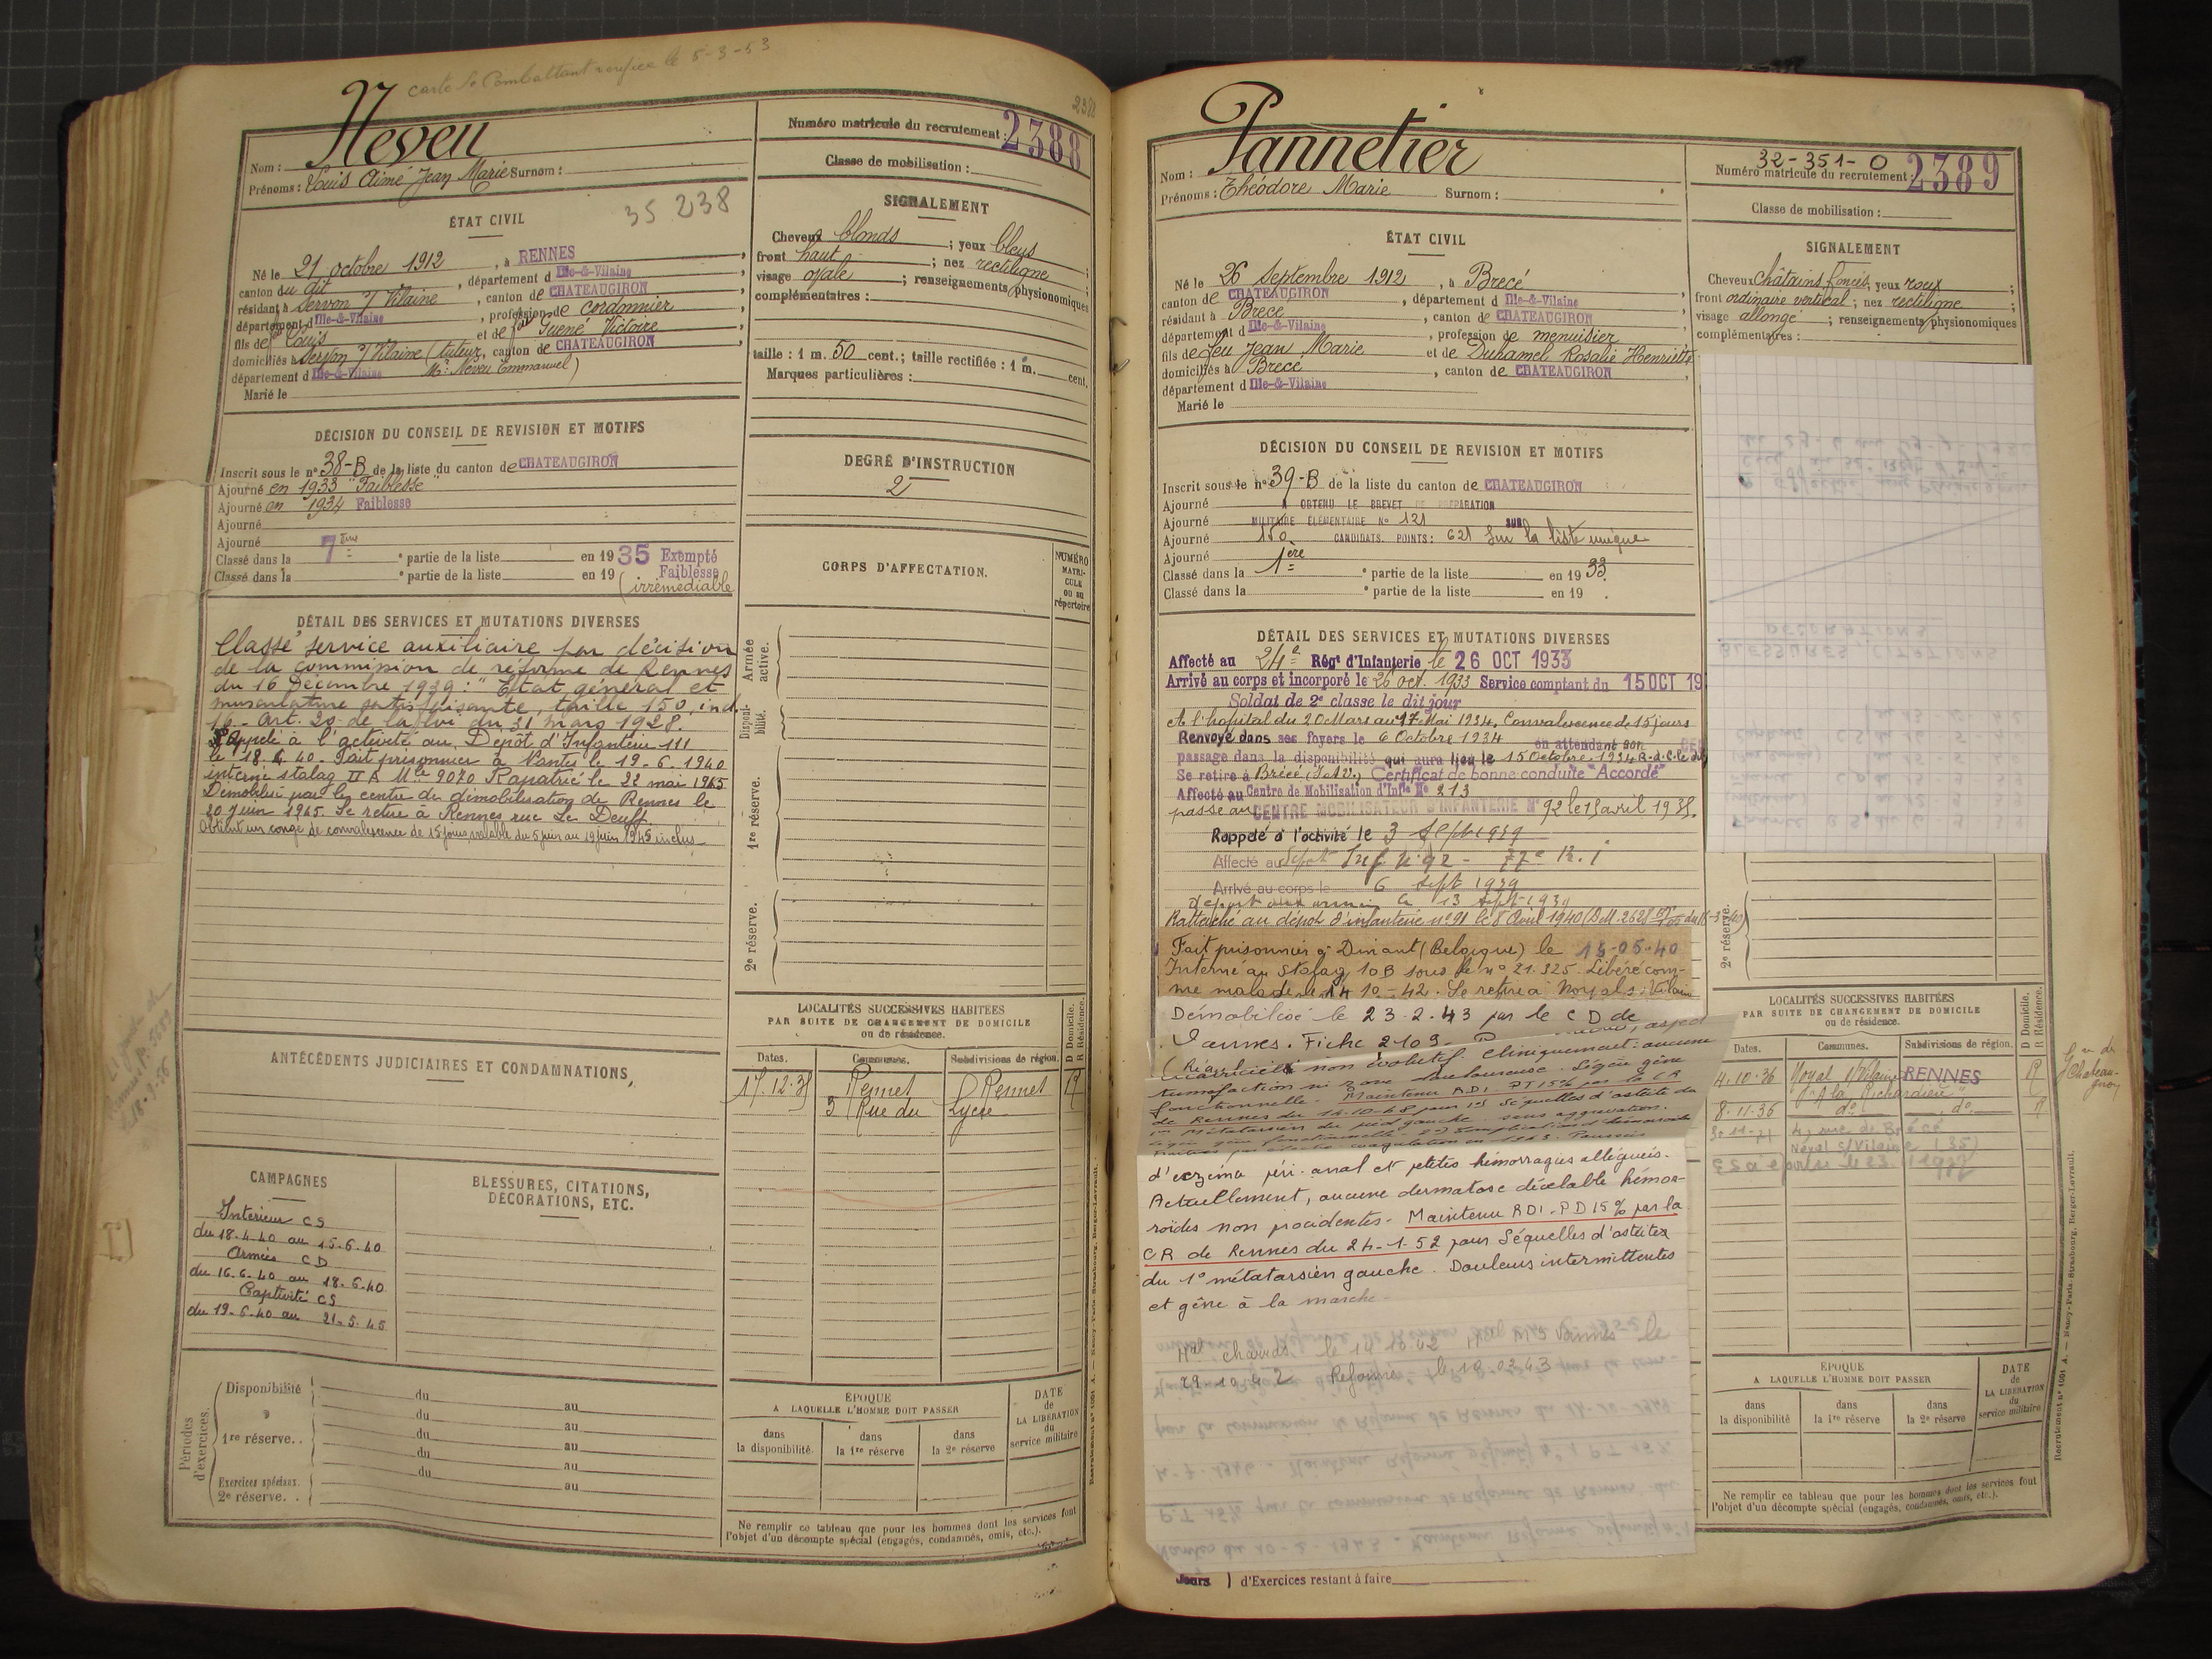 carte de Combattant vérifiée le 5-3-53
2388
Neveu
Nom :
Prénoms : Louis Aimé Jean Marie Surnom :
Numéro matricule du recrutement : 2388
Classe de mobilisation :
ÉTAT CIVIL
35.238
Né le 21 octobre 1912, à RENNES
canton du dit, département d Ille-&-Vilaine
résidant à Servon s/ Vilaine, canton de CHATEAUGIRON
département d Ille-&-Vilaine, profession de cordonnier
fils de Louis et de Guené Victoire
domiciliés à Servon s/ Vilaine (tuteur, canton de CHATEAUGIRON
département d Ille-&-Vilaine Mr Neveu Emmanuel)
Marié le
SIGNALEMENT
Cheveux blonds ; yeux bleus
front haut ; nez rectiligne
visage ovale ; renseignements physionomiques
complémentaires :
taille : 1 m. 50 cent. ; taille rectifiée : 1 m. cent.
Marques particulières :
DÉCISION DU CONSEIL DE REVISION ET MOTIFS
Inscrit sous le n° 38-B de la liste du canton de CHATEAUGIRON
Ajourné en 1933 "Faiblesse"
Ajourné en 1934 Faiblesse
Ajourné
Ajourné
Classé dans la 7ème partie de la liste en 1935 Exempté
Faiblesse
Classé dans la partie de la liste en 19
(irrémédiable
DEGRÉ D'INSTRUCTION
2
CORPS D'AFFECTATION.
NUMÉRO MATRI-CULE ou au répertoire
DÉTAIL DES SERVICES ET MUTATIONS DIVERSES
Classé service auxiliaire par décision
de la commission de réforme de Rennes
du 16 Décembre 1939 : "Etat général et
musculature satisfaisante, taille 150, ind.
16 - Art. 20 de la loi du 31 mars 1928.
Rappelé à l'activité au Dépôt d'Infanterie 111
le 18.4.40. Fait prisonnier à Nantes le 19.6.1940
interné stalag II A Mle 9070 Rapatrié le 22 mai 1945
Démobilisé par le centre de démobilisation de Rennes le
20 juin 1945. Se retire à Rennes rue Le Deuff
Obtient un congé de convalescence de 15 jours valable du 5 juin au 19 juin 1945 inclus
Armée active.
Disponi-bilité.
1re réserve.
2e réserve.
ANTÉCÉDENTS JUDICIAIRES ET CONDAMNATIONS,
LOCALITÉS SUCCESSIVES HABITÉES
PAR SUITE DE CHANGEMENT DE DOMICILE
ou de résidence.
D Domicile.
R Résidence.
Dates. Communes. Subdivisions de région.
17.12.35 Rennes Rennes R
3 Rue du Lycée
CAMPAGNES
Intérieur CS
du 18.4.40 au 15.6.40
Armées CD
du 16.6.40 au 18.6.40
Captivité CS
du 19.6.40 au 21.5.45
BLESSURES, CITATIONS,
DÉCORATIONS, ETC.
Périodes d'exercices.
Disponibilité du au
du au
1re réserve.. du au
du au
Exercices spéciaux. du au
2e réserve. .
ÉPOQUE
A LAQUELLE L'HOMME DOIT PASSER
dans la disponibilité.
dans la 1re réserve
dans la 2e réserve
DATE de LA LIBÉRATION du service militaire
Ne remplir ce tableau que pour les hommes dont les services font
l'objet d'un décompte spécial (engagés, condamnés, omis, etc.).
Pannetier
Nom :
Prénoms : Théodore Marie Surnom :
32-351-0
Numéro matricule du recrutement : 2389
Classe de mobilisation :
ÉTAT CIVIL
Né le 26 Septembre 1912, à Brecé
canton de CHATEAUGIRON, département d Ille-&-Vilaine
résidant à Brecé, canton de CHATEAUGIRON
département d Ille-&-Vilaine, profession de menuisier
fils de feu Jean Marie et de Duhamel Rosalie Henriette
domiciliés à Brecé, canton de CHATEAUGIRON
département d Ille-&-Vilaine
Marié le
SIGNALEMENT
Cheveux châtains foncés ; yeux roux
front ordinaire vertical ; nez rectiligne
visage allongé ; renseignements physionomiques
complémentaires :
DÉCISION DU CONSEIL DE REVISION ET MOTIFS
Inscrit sous le n° 39-B de la liste du canton de CHATEAUGIRON
Ajourné A OBTENU LE BREVET DE PRÉPARATION
Ajourné MILITAIRE ÉLÉMENTAIRE N° 121 SUR
Ajourné 150 CANDIDATS. POINTS : 621 Sur la liste unique
Ajourné
Classé dans la 1ère partie de la liste en 1933.
Classé dans la partie de la liste en 19
DÉTAIL DES SERVICES ET MUTATIONS DIVERSES
Affecté au 24e Régt d'Infanterie le 26 OCT 1933
Arrivé au corps et incorporé le 26 oct. 1933 Service comptant du 15 OCT 19
Soldat de 2e classe le dit jour
A l'hopital du 20 Mars au 17 Mai 1934. Convalescence de 15 jours
Renvoyé dans ses foyers le 6 Octobre 1934 en attendant son
passage dans la disponibilité qui aura lieu le 15 Octobre 1934
Se retire à Brécé (I. & V.) Certificat de bonne conduite "Accordé"
Affecté au Centre de Mobilisation d'Infie N° 213
passé au CENTRE MOBILISATEUR D'INFANTERIE N° 92 le 15 avril 1935.
Rappelé à l'activité le 3 Sept 1939
Affecté au Dépôt Inf n° 92 - 77e R.I
Arrivé au corps le 6 Sept 1939
départ aux armées le 13 sept 1939
Rattaché au dépôt d'infanterie n° 91 le 8 Avril 1940
Fait prisonnier à Dinant (Belgique) le 15-05-40
Interné au Stalag 10B sous le n° 21.325. Libéré com-
me malade le 14-10-42. Se retire à Noyal s/ Vilaine
Démobilisé le 23.2.43 par le CD de
Vannes. Fiche 2109
non évolutif. Cliniquement : aucune
tuméfaction ni zone douloureuse. Légère gêne
fonctionnelle. Maintenu RD1 PT 15% par la CR
de Rennes du 14-10-48 pour 1°) Séquelles d'astéite du
1er métatarsien du pied gauche sans aggravation.
d'eczéma péri-anal et petites hémorragies alléguées.
Actuellement, aucune dermatose décelable hémor-
roïdes non procidentes. Maintenu RD1-PD 15% par la
CR de Rennes du 24-1-52 pour Séquelles d'ostéite
du 1° métatarsien gauche. Douleurs intermittentes
et gêne à la marche.
2e réserve.
BLESSURES, CITATIONS
DECORATIONS
LOCALITÉS SUCCESSIVES HABITÉES
PAR SUITE DE CHANGEMENT DE DOMICILE
ou de résidence.
D Domicile.
R Résidence.
Dates. Communes. Subdivisions de région.
4.10.36 Noyal s/Vilaine RENNES R
"A la Richardière"
8.11.36 do do R
30-11-71 4, rue de Brécé
Noyal s/Vilaine (35)
ÉPOQUE
A LAQUELLE L'HOMME DOIT PASSER
dans la disponibilité
dans la 1re réserve
dans la 2e réserve
DATE de LA LIBÉRATION du service militaire
Ne remplir ce tableau que pour les hommes dont les services font
l'objet d'un décompte spécial (engagés, condamnés, omis, etc.).
Jours } d'Exercices restant à faire
Recrutement N° 1001 A. — Nancy-Paris-Strasbourg, Berger-Levrault.